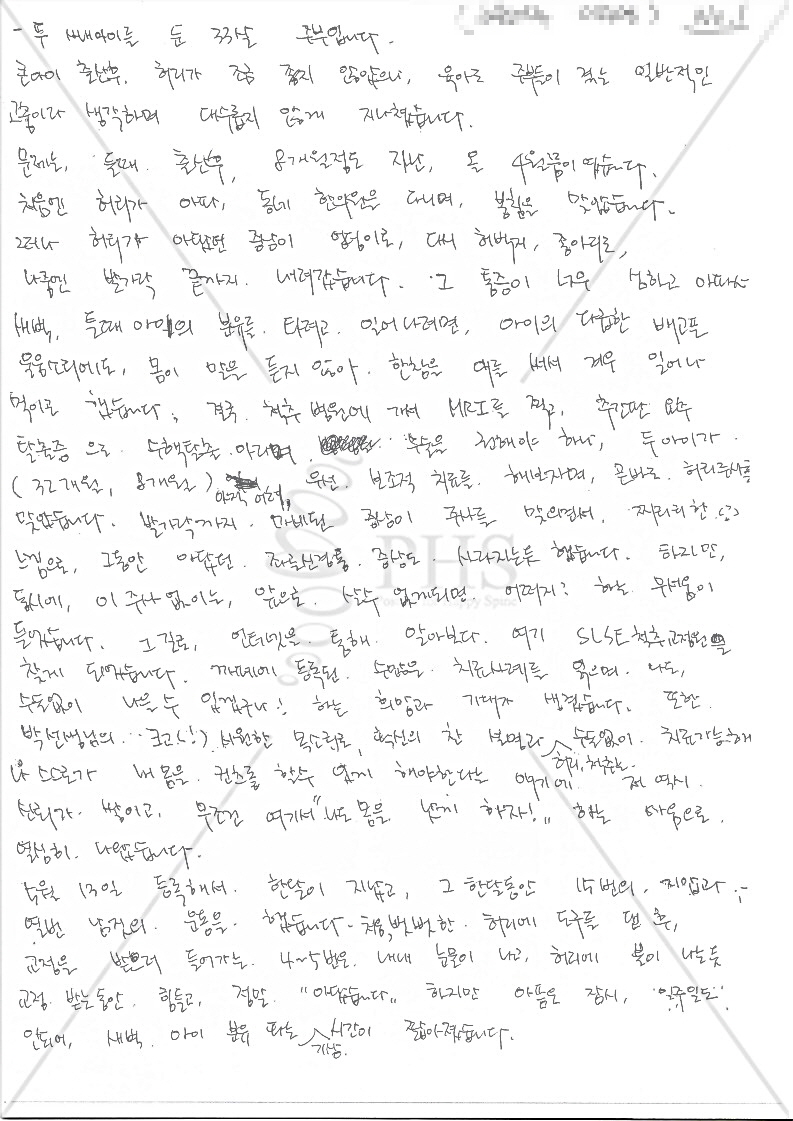 No.1
- 두 사내아이를 둔 33살 주부입니다.
큰아이 출산후, 허리가 조금 좋지 않았으나, 육아로 주부들이 겪는 일반적인
고충이라 생각하며 대수롭지 않게 지나쳤습니다.
문제는, 둘째 출산후, 8개월정도 지난, 올 4월쯤이였습니다.
처음엔 허리가 아파, 동네 한의원을 다니며, 봉침을 맞았습니다.
그러나 허리가 아팠던 증상이 엉덩이로, 다시 허벅지, 종아리로,
나중엔 발가락 끝까지 내려갔습니다. 그 통증이 너무 심하고 아파서
새벽, 둘째아이의 분유를 타려고 일어나려면, 아이의 다급한 배고픈
울음소리에도, 몸이 말을 듣지 않아 한참을 애를 써서 겨우 일어나
먹이곤 했습니다. 결국 척추 병원에 가서 MRI를 찍고, 추간판 요수
탈출증 으로 수핵탈출 이라며, 수술을 권해야 하나, 두아이가
(32개월, 8개월) 아직 어려, 우선 보조적 치료를 해보자며, 곧바로 허리주사를
맞았습니다. 발가락까지 마비된 증상이 주사를 맞으면서, 찌리리한
느낌으로, 그동안 아팠던 좌골신경통 증상도 사라지는듯 했습니다. 하지만,
동시에, 이 주사 없이는, 앞으로 살수 없게되면 어쩌지? 하는 무서움이
들었습니다. 그길로, 인터넷을 통해 알아보다 여기 SLSE척추교정원을
찾게 되었습니다. 까페에 등록된 수많은 치료사례를 읽으며 나도,
수술없이 나을수 있겠구나! 하는 희망과 기대가 생겼습니다. 또한
박선생님의 크고(!) 시원한 목소리로, 확신의 찬 설명과 수술없이 치료가능하며
나 스스로가 내몸을 컨츄롤 할수 있게 해야한다는 얘기에 저 역시
허리, 척추는
신뢰가 쌓이고, 무조건 여기서 "나도 몸을 낫게 하자!" 하는 마음으로
열심히 다녔습니다.
6월 13일 등록해서 한달이 지났고, 그 한달동안 15번의 지압과
열번 남짓의 운동을 했습니다 - 처음, 뻣뻣한 허리에 도구를 댄 후,
교정을 받으러 들어가는 4~5번은 내내 눈물이 나고, 허리에 불이 나는듯
교정 받는동안 힘들고, 정말 "아팠습니다" 하지만 아픔은 잠시, 일주일도
안되어, 새벽 아이 분유 타는 시간이 짧아졌습니다.
기상
PHS
For Happy Spine